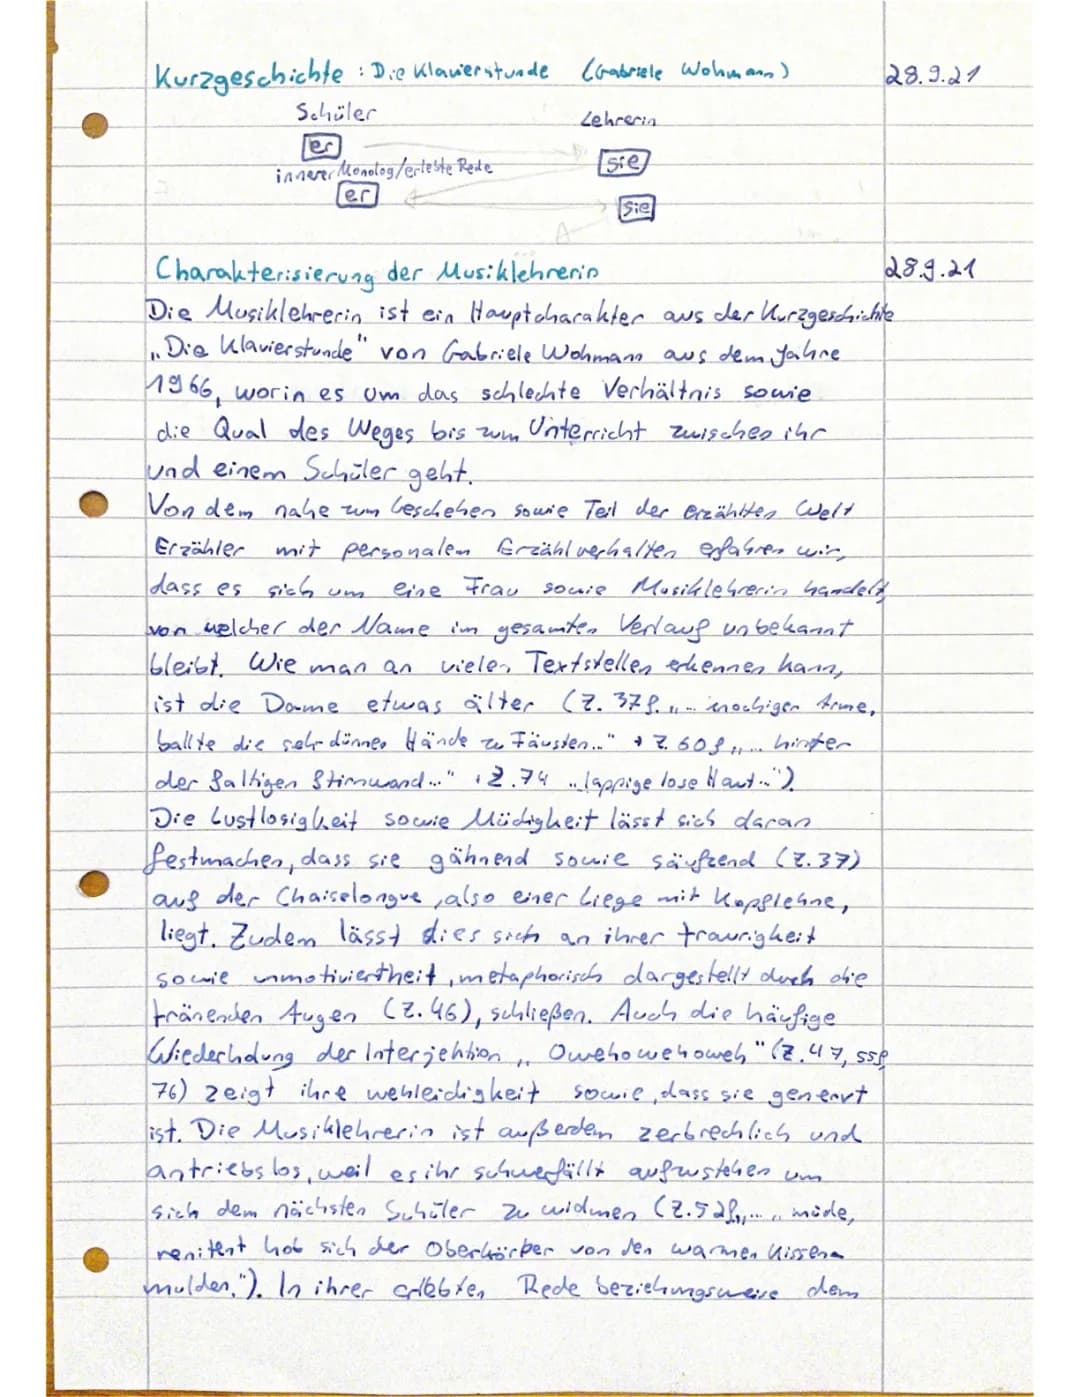 Kurzgeschichte : Die Klavierstunde (Gabriele Wohmann) 28.9.21
Schüler Lehrerin
er sie
innerer Monolog/erlebte Rede
er sie
Charakterisierung der Musiklehrerin 28.9.21
Die Musiklehrerin ist ein Hauptcharakter aus der Kurzgeschichte
„Die Klavierstunde" von Gabriele Wohmann aus dem Jahre
1966, worin es um das schlechte Verhältnis sowie
die Qual des Weges bis zum Unterricht zwischen ihr
und einem Schüler geht.
Von dem nahe zum Geschehen sowie Teil der erzählten Welt
Erzähler mit personalem Erzählverhalten erfahren wir,
dass es sich um eine Frau sowie Musiklehrerin handelt,
von welcher der Name im gesamten Verlauf unbekannt
bleibt. Wie man an vielen Textstellen erkennen kann,
ist die Dame etwas älter (Z. 37f. „... knochigen Arme,
ballte die sehr dünnen Hände zu Fäusten..." + Z. 60f „... hinter
der faltigen Stirnwand..." , Z. 74 „..lappige lose Haut..").
Die Lustlosigkeit sowie Müdigkeit lässt sich daran
festmachen, dass sie gähnend sowie säufzend (Z.37)
auf der Chaiselongue, also einer Liege mit Kopflehne,
liegt. Zudem lässt dies sich an ihrer traurigkeit
sowie unmotiviertheit, metaphorisch dargestellt duch die
tränenden Augen (Z. 46), schließen. Auch die häufige
Wiederholung der Interjektion „ Owehowehoweh" (Z. 47, 55f
76) zeigt ihre wehleidigkeit sowie, dass sie genervt
ist. Die Musiklehrerin ist außerdem zerbrechlich und
antriebslos, weil es ihr schwerfällt aufzustehen um
sich dem nächsten Schüler zu widmen (Z.52f„... , müde,
renitent hob sich der Oberkörper von den warmen Kissen
mulden."). In ihrer erlebten Rede beziehungsweise dem